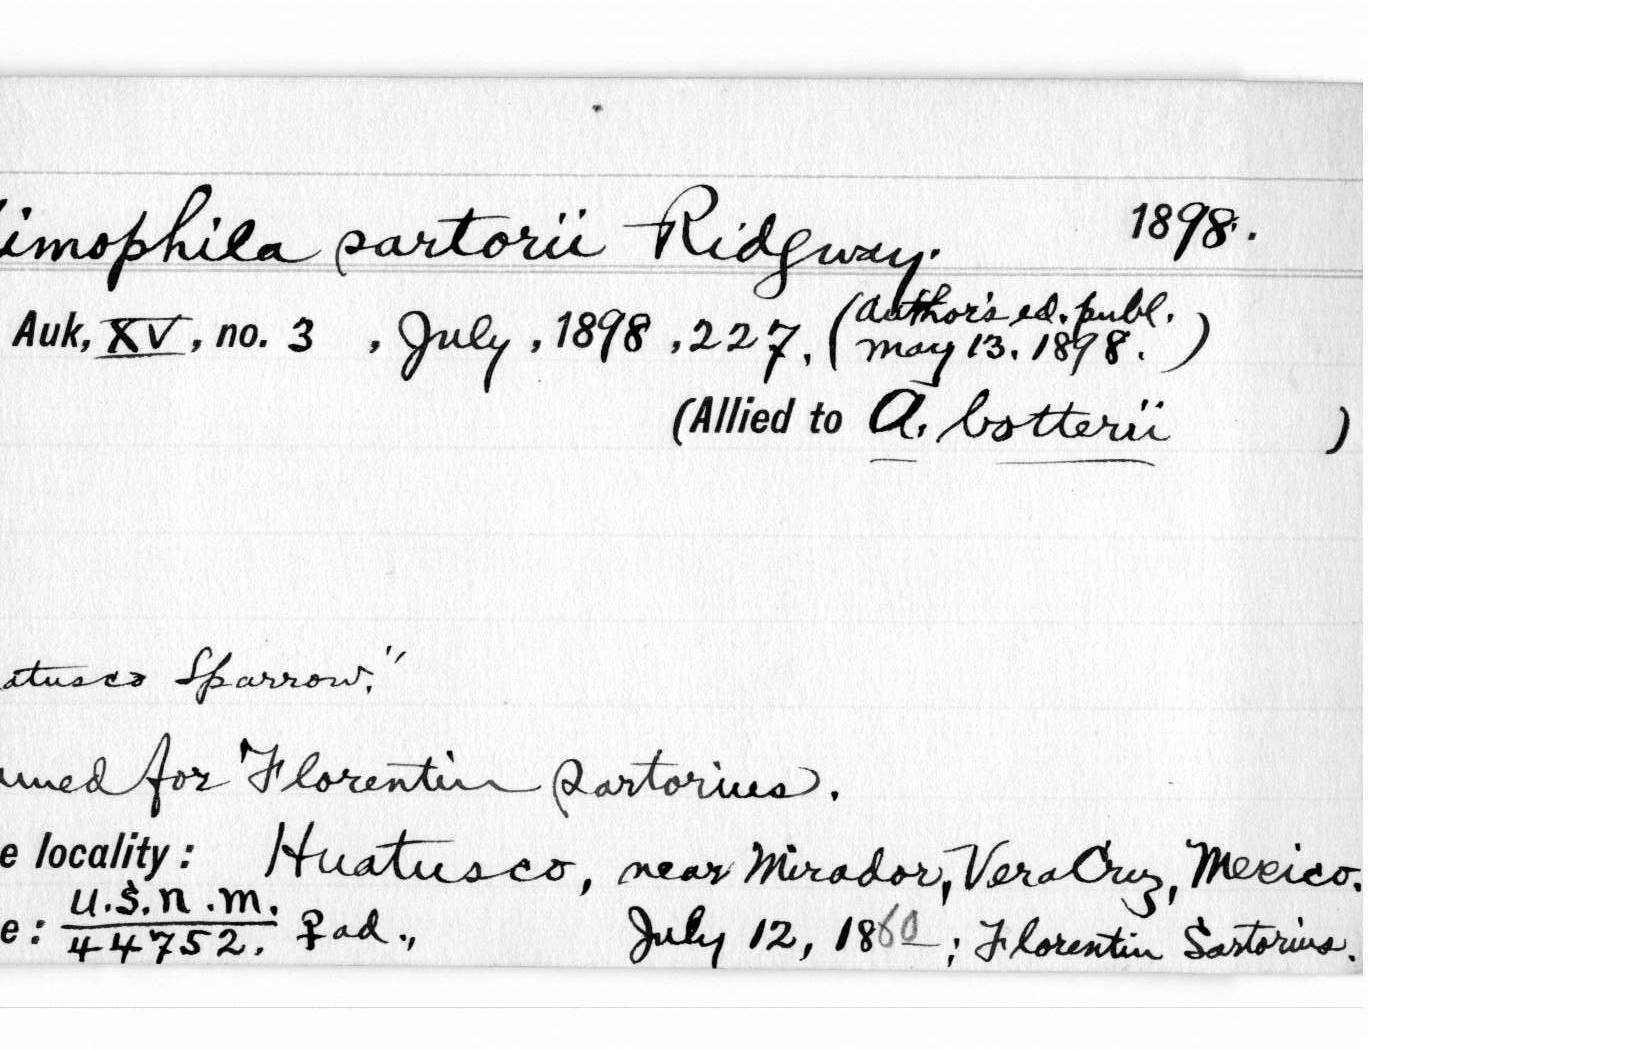 imophila sartorii Ridgway. 1898.
Auk, XV, no. 3, July, 1898, 227, (Author's ed. publ. May 13. 1898.)
(Allied to A. botterii)
atusco Sparrow."
med for Florentin Sartorius.
e locality: Huatusco, near Mirador, Vera Cruz, Mexico.
e: U.S.N.M. 44752. ♀ ad., July 12, 1860; Florentin Sartorius.